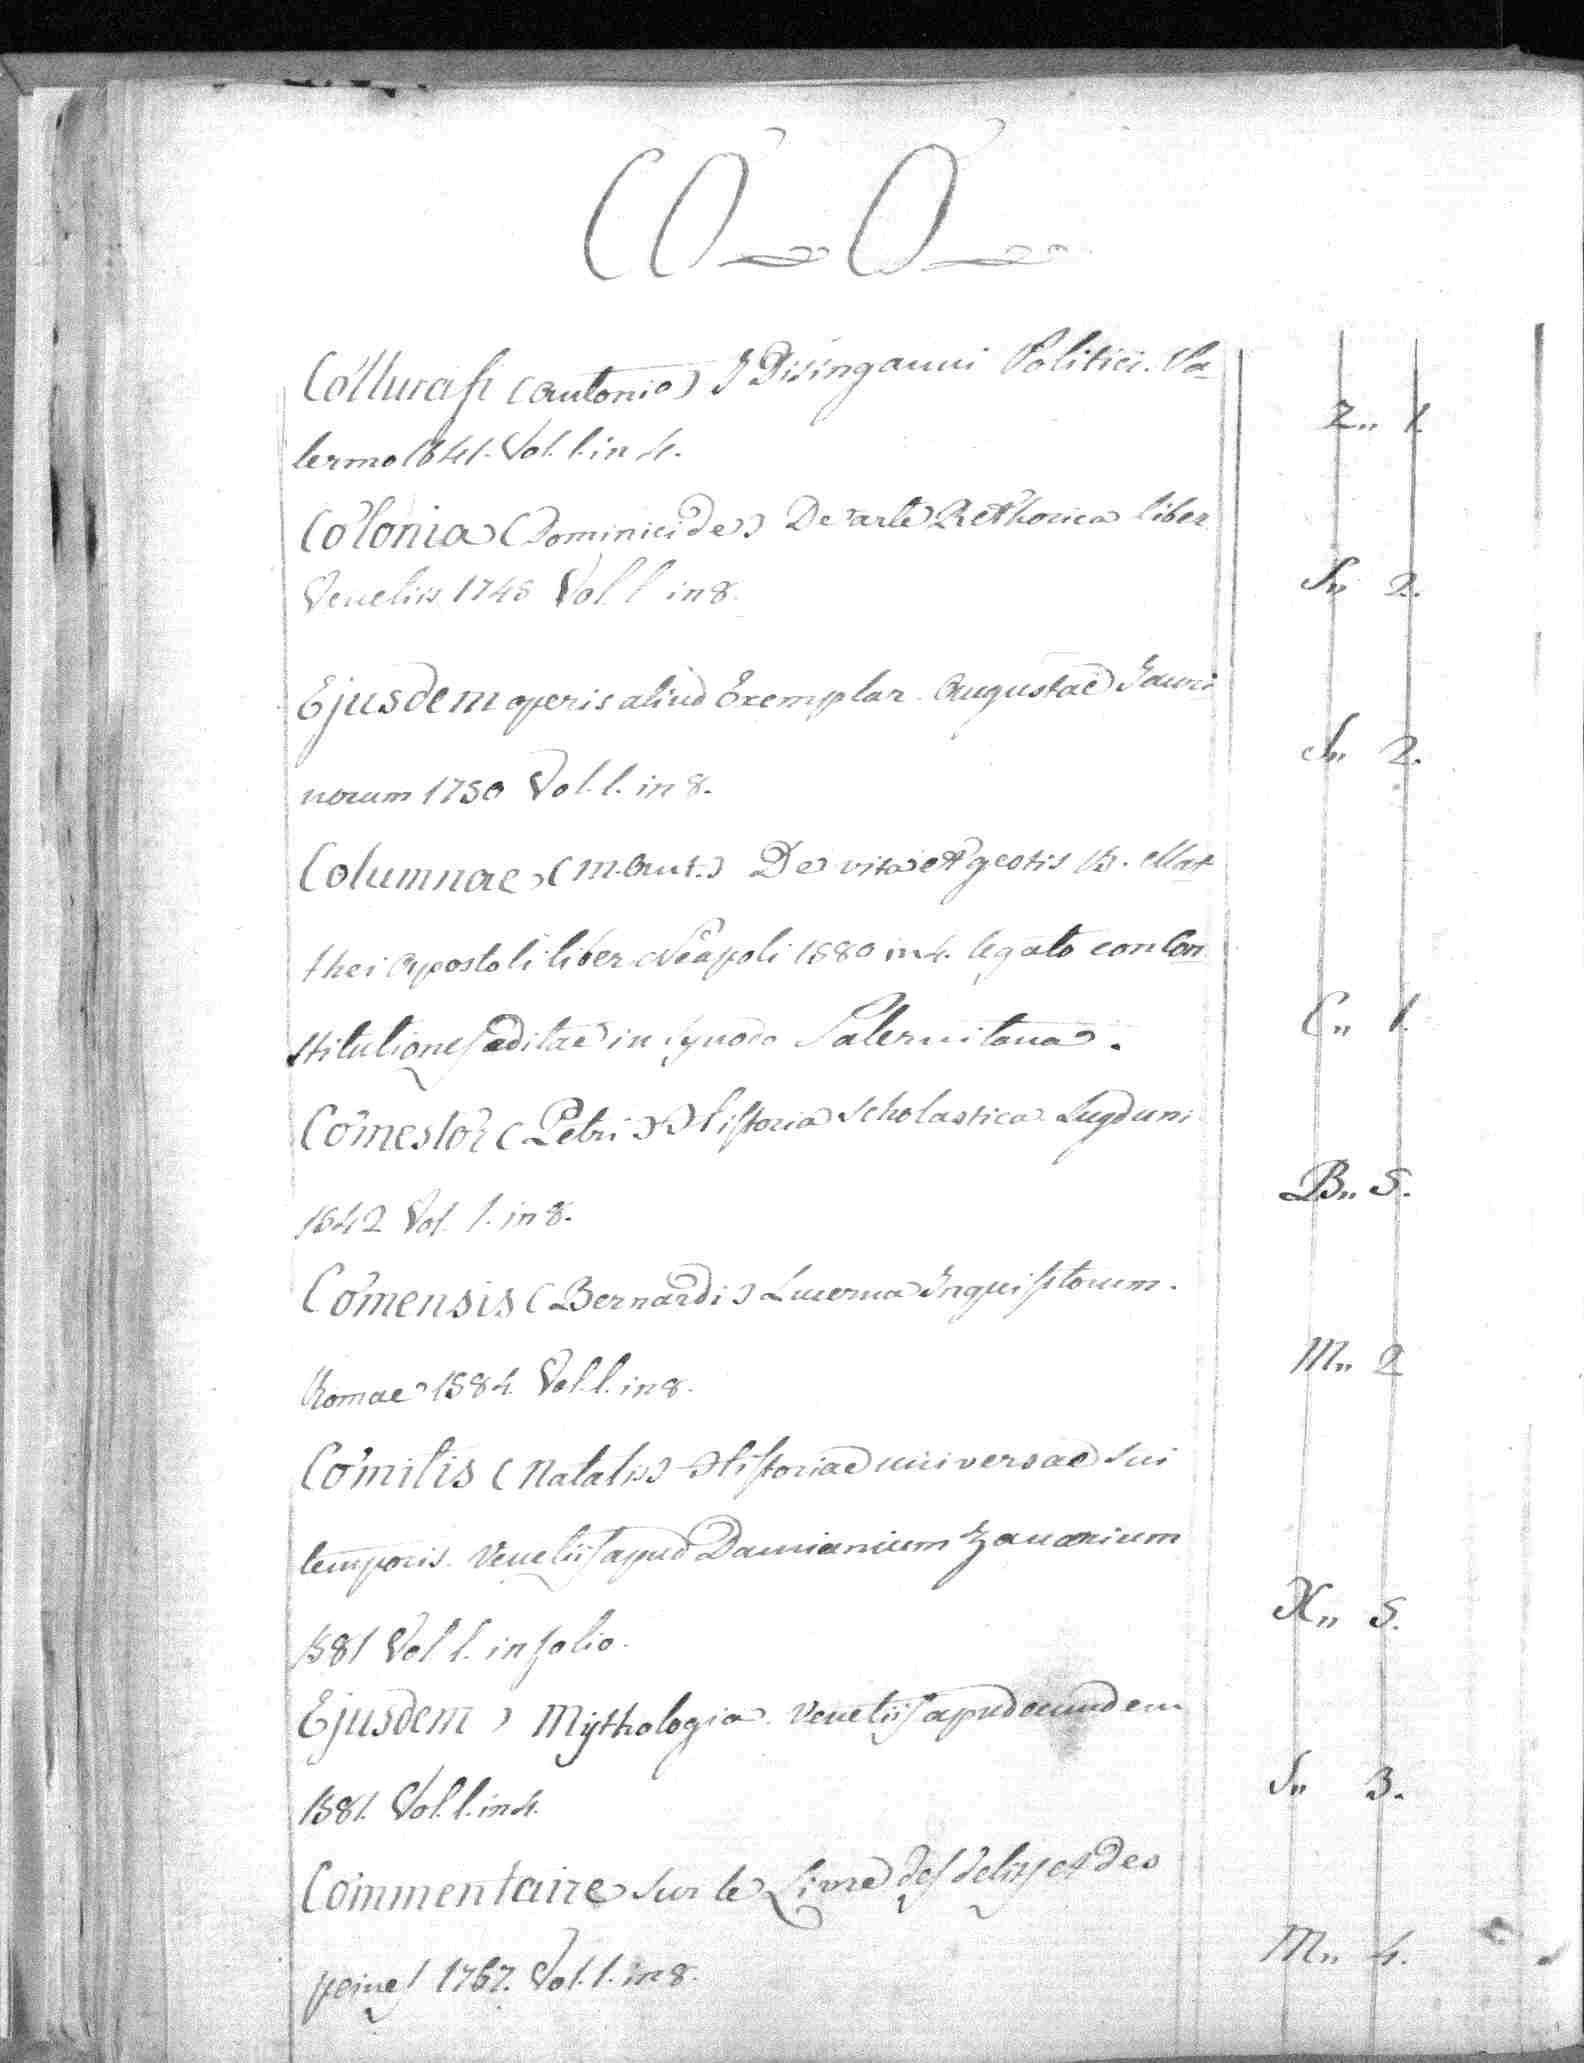 CO O
Collurafi (Antonio) I Disinganni Politici. Pa-
lermo 1641. Vol. 1. in 4.
Z„ 1.
Colonia (Dominici de) De arte Rethorica liber
Venetiis 1748 Vol. 1 in 8.
S„ 2.
Ejusdem operis aliud Exemplar. Augustae Tauri
norum 1750 Vol. 1. in 8.
S„ 2.
Columnae (M. Ant.) De vita et gestis B. Mat
thei Apostoli liber Neapoli 1580 in 4. legato con Con
stitutiones editae in Synodo Salernitana.
C„ 1.
Comestor (Petri) Historia Scholastica Lugduni
1542 Vol. 1. in 8.
B„ 5.
Comensis (Bernardi) Lucerna Inquisitorum.
Romae 1584 Vol. 1. in 8.
M„ 2
Comitis (Natalis) Historiae universae sui
temporis. Venetiis apud Damianum Zenarium
1581 Vol 1. in folio.
X„ 5.
Ejusdem) Mythologia. Venetiis apud eundem
1581. Vol. 1. in 4.
S„ 3.
Commentaire sur le Livre des delits et des
peines 1767. Vol. 1. in 8.
M„ 4.